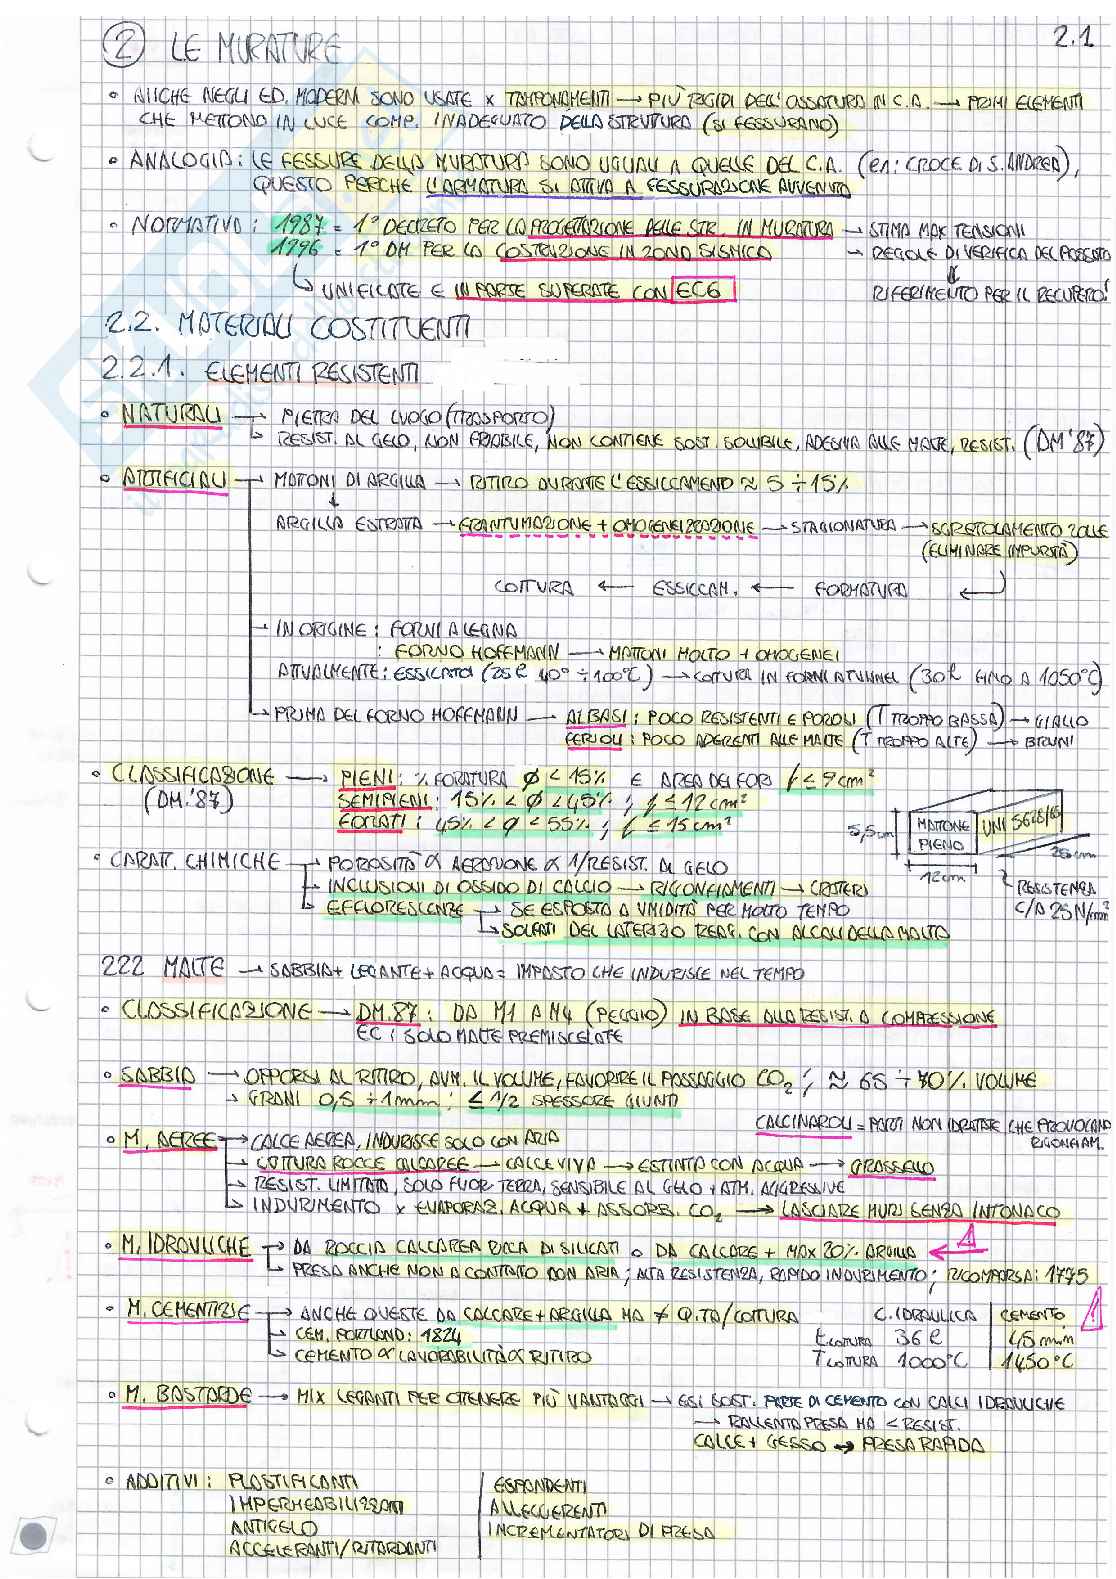 2 LE MURATURE 2.1
• ANCHE NEGLI ED. MODERNI SONO USATE x TAMPONAMENTI → PIÙ RIGIDI DELL'OSSATURA IN C.A. → PRIMI ELEMENTI
CHE METTONO IN LUCE COMP. INADEGUATO DELLA STRUTTURA (SI FESSURANO)
• ANALOGIA: LE FESSURE DELLA MURATURA SONO UGUALI A QUELLE DEL C.A. (ES: CROCE DI S. ANDREA),
QUESTO PERCHÉ L'ARMATURA SI ATTIVA A FESSURAZIONE AVVENUTA
• NORMATIVA: 1987 = 1° DECRETO PER LA PROGETTAZIONE DELLE STR. IN MURATURA → STIMA MAX TENSIONI
1996 = 1° DM PER LA COSTRUZIONE IN ZONA SISMICA → REGOLE DI VERIFICA DEL POSSESSO
↳ UNIFICATE E IN PARTE SUPERATE CON EC6 RIFERIMENTO PER IL RECUPERO!
2.2. MATERIALI COSTITUENTI
2.2.1. ELEMENTI RESISTENTI
• NATURALI → PIETRA DEL LUOGO (TRASPORTO)
↳ RESIST. AL GELO, NON FRIABILE, NON CONTIENE SOST. SOLUBILE, ADESIVA ALLE MALTE, RESIST. (DM '87)
• ARTIFICIALI → MATTONI DI ARGILLA → RITIRO DURANTE L'ESSICCAMENTO ≈ 5 ÷ 15%
ARGILLA ESTRATTA → FRANTUMAZIONE + OMOGENEIZZAZIONE → STAGIONATURA → SGRETOLAMENTO ZOLLE
(ELIMINARE IMPURITÀ)
COTTURA ← ESSICCAM. ← FORMATURA ←
→ IN ORIGINE: FORNI A LEGNA
: FORNO HOFFMANN → MATTONI MOLTO + OMOGENEI
ATTUALMENTE: ESSICATOI (25h 40° ÷ 100°C) → COTTURA IN FORNI A TUNNEL (30h FINO A 1050°C)
→ PRIMA DEL FORNO HOFFMANN → ALBASI: POCO RESISTENTI E POROSI (T TROPPO BASSA) → GIALLO
FERIOLI: POCO ADERENTI ALLE MALTE (T TROPPO ALTE) → BRUNI
• CLASSIFICAZIONE → PIENI: % FORATURA φ < 15% E AREA DEI FORI f ≤ 9 cm²
(DM.'87) SEMIPIENI: 15% < φ < 45% ; f ≤ 12 cm²
FORATI: 45% < φ < 55% ; f ≤ 15 cm²
5,5cm MATTONE PIENO UNI 5628/65
12cm 25cm
RESISTENZA
C/A 25 N/mm²
• CARATT. CHIMICHE → POROSITÀ ∝ AEROSIONE ∝ 1/RESIST. AL GELO
→ INCLUSIONI DI OSSIDO DI CALCIO → RIGONFIAMENTI → CRATERI
→ EFFLORESCENZE → SE ESPOSTA A UMIDITÀ PER MOLTO TEMPO
↳ SOLFATI DEL LATERIZIO REAG. CON ALCALI DELLA MALTA
222 MALTE → SABBIA + LEGANTE + ACQUA = IMPASTO CHE INDURISCE NEL TEMPO
• CLASSIFICAZIONE → DM.87: DA M1 A M4 (PEGGIO) IN BASE ALLA RESIST. A COMPRESSIONE
EC: SOLO MALTE PREMISCELATE
• SABBIA → OPPORSI AL RITIRO, AUM. IL VOLUME, FAVORIRE IL PASSAGGIO CO₂ ; ≈ 65 ÷ 70% VOLUME
→ GRANI 0,5 ÷ 1mm ; ≤ 1/2 SPESSORE GIUNTI
CALCINAROLI = PARTI NON IDRATATE CHE PROVOCANO
RIGONFIAM.
• M. AEREE → CALCE AEREA, INDURISCE SOLO CON ARIA
→ COTTURA ROCCE CALCAREE → CALCE VIVA → ESTINTA CON ACQUA → GRASSELLO
→ RESIST. LIMITATA, SOLO FUORI TERRA, SENSIBILE AL GELO + ATM. AGGRESSIVE
↳ INDURIMENTO x EVAPORAZ. ACQUA + ASSORB. CO₂ → LASCIARE MURI SENZA INTONACO
• M. IDRAULICHE → DA ROCCIA CALCAREA RICCA DI SILICATI O DA CALCARE + MAX 20% ARGILLA ← !
↳ PRESA ANCHE NON A CONTATTO CON ARIA; ALTA RESISTENZA, RAPIDO INDURIMENTO; RICOMPARSA: 1775
• M. CEMENTIZIE → ANCHE QUESTE DA CALCARE + ARGILLA MA ≠ Q.TÀ/COTTURA
→ CEM. PORTLAND: 1824
↳ CEMENTO ∝ LAVORABILITÀ ∝ RITIRO
C. IDRAULICA CEMENTO !
t COTTURA 36h 45 min
T COTTURA 1000°C 1450°C
• M. BASTARDE → MIX LEGANTI PER OTTENERE PIÙ VANTAGGI → ES: SOST. PARTE DI CEMENTO CON CALCI IDRAULICHE
→ RALLENTA PRESA MA < RESIST.
CALCE + GESSO → PRESA RAPIDA
• ADDITIVI: PLASTIFICANTI ESPANDENTI
IMPERMEABILIZZANTI ALLEGGERENTI
ANTIGELO INCREMENTATORI DI PRESA
ACCELERANTI/RITARDANTI